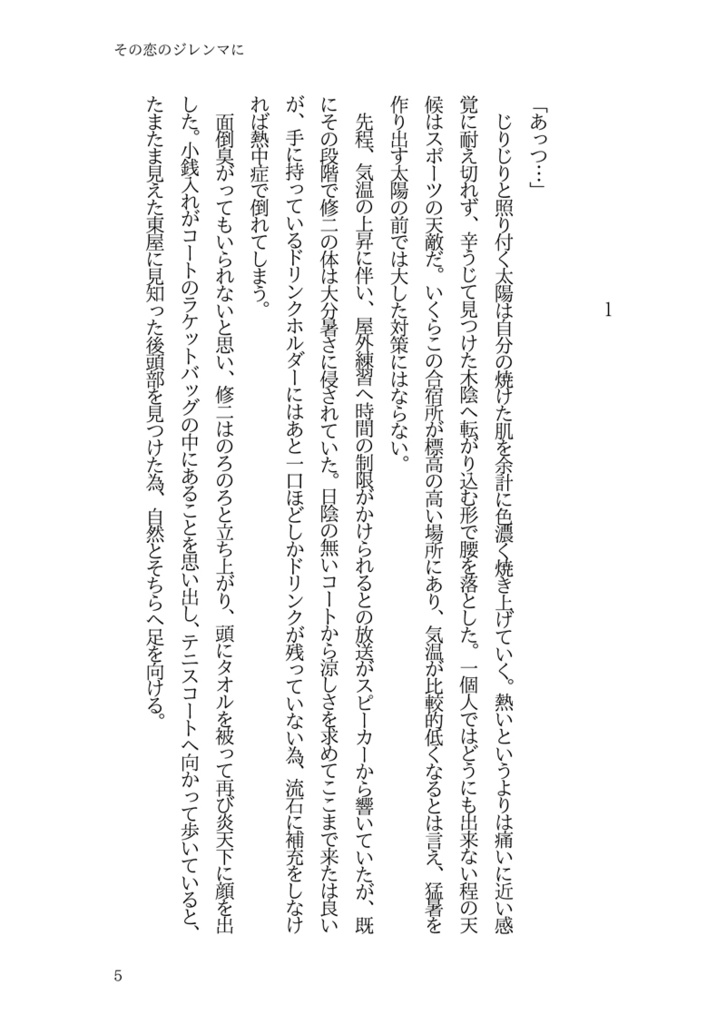 その恋のジレンマに
1
「あっつ…」
じりじりと照り付く太陽は自分の焼けた肌を余計に色濃く焼き上げていく。熱いというよりは痛いに近い感
覚に耐え切れず、辛うじて見つけた木陰へ転がり込む形で腰を落とした。一個人ではどうにも出来ない程の天
候はスポーツの天敵だ。いくらこの合宿所が標高の高い場所にあり、気温が比較的低くなるとは言え、猛暑を
作り出す太陽の前では大した対策にはならない。
先程、気温の上昇に伴い、屋外練習へ時間の制限がかけられるとの放送がスピーカーから響いていたが、既
にその段階で修二の体は大分暑さに侵されていた。日陰の無いコートから涼しさを求めてここまで来たは良い
が、手に持っているドリンクホルダーにはあと一口ほどしかドリンクが残っていない為、流石に補充をしなけ
れば熱中症で倒れてしまう。
面倒臭がってもいられないと思い、修二はのろのろと立ち上がり、頭にタオルを被って再び炎天下に顔を出
した。小銭入れがコートのラケットバッグの中にあることを思い出し、テニスコートへ向かって歩いていると、
たまたま見えた東屋に見知った後頭部を見つけた為、自然とそちらへ足を向ける。
5